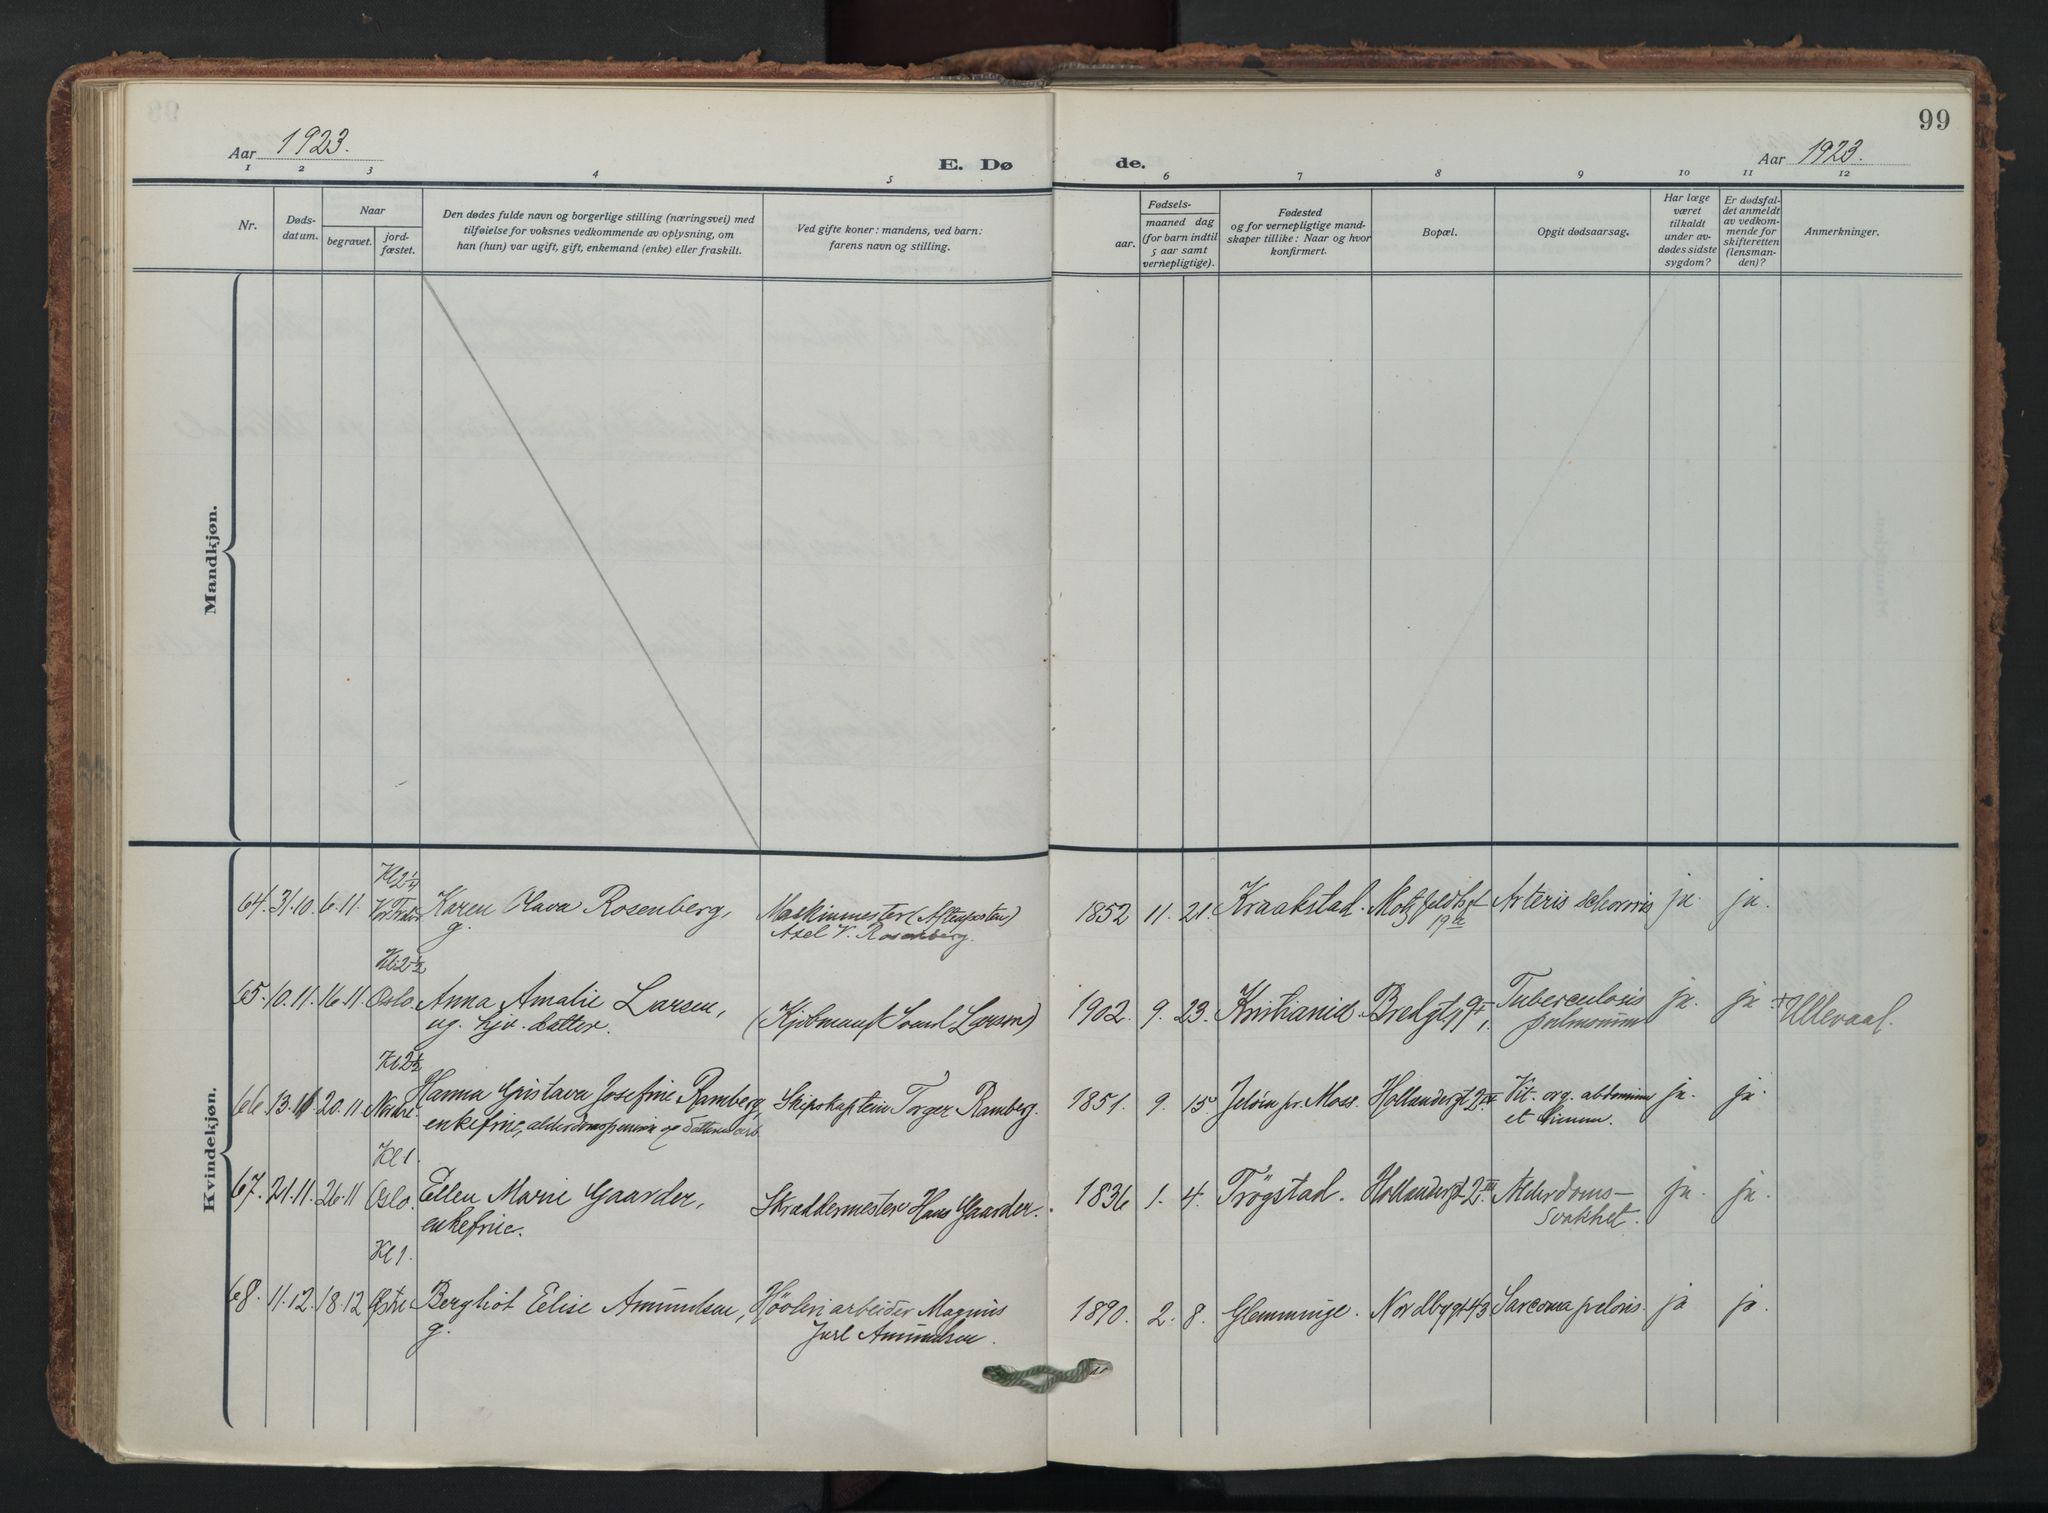 99
Aar 1923.
E. Dø
de.
Aar 1923.
1 2 3 4 5 6 7 8 9 10 11 12
Nr.
Døds-
datum.
Naar
begravet.
jord-
fæstet.
Den dødes fulde navn og borgerlige stilling (næringsvei) med
tilføielse for voksnes vedkommende av oplysning, om
han (hun) var ugift, gift, enkemand (enke) eller fraskilt.
Ved gifte koner: mandens, ved barn:
farens navn og stilling.
Fødsels-
aar.
maaned dag
(for barn indtil
5 aar samt
vernepligtige).
Fødested
og for vernepligtige mand-
skaper tillike: Naar og hvor
konfirmert.
Bopæl.
Opgit dødsaarsag.
Har læge
været
tilkaldt
under av-
dødes sidste
sygdom?
Er dødsfal-
det anmeldt
av vedkom-
mende for
skifteretten
(lensman-
den)?
Anmerkninger.
Mandkjøn.
Kvindekjøn.
64. 31.10. 6.11. Karen Olava Rosenberg, Maskinmester (Aftenposten) 1852 11. 21. Kraakstad. ja. ja.
g. Axel V. Rosenberg. 19
Kl 2½
65. 10.11. 16.11 Oslo Anna Amalie Larsen, 1902. 9. 23. Kristiania. Tuberculosis ja. ja + Ullevaal.
ug. hjv. datter. pulmonum
Kl 2½
66. 13.11 20.11 Nordre Hanna Gustava Josefine Ramberg, Skipskaptein Torger Ramberg. 1851. 9. 15. Jeløen pr. Moss. Hollendergt 2 Vit. org. abdomin ja. ja.
enkefrue, alderdomspension og
Kl 1.
67. 21.11. 26.11 Oslo. Ellen Marie Gaarder, Skræddermester Hans Gaarder. 1836 1. 4. Trøgstad. Hollendergt 2 III Alderdoms- ja. ja.
enkefrue. svakhet.
Kl 1.
68. 11.12. 18.12 Østre Bergliot Elise Amundsen, Høvleriarbeider Magnus 1890. 2. 8. Glemminge. Nordbygt 43 Sarcoma pelvis. ja ja.
g. Jarl Amundsen.